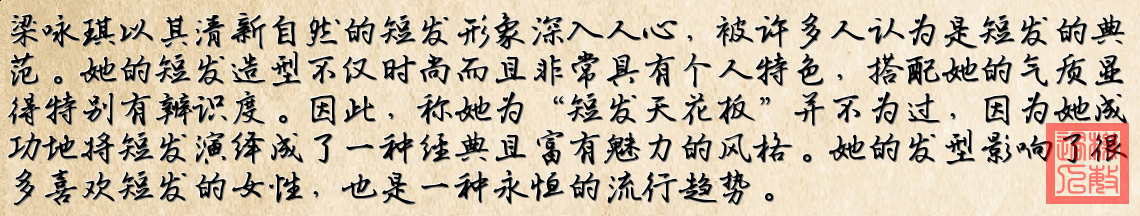 梁咏琪以其清新自然的短发形象深入人心，被许多人认为是短发的典
范。她的短发造型不仅时尚而且非常具有个人特色，搭配她的气质显
得特别有辨识度。因此，称她为“短发天花板”并不为过，因为她成
功地将短发演绎成了一种经典且富有魅力的风格。她的发型影响了很
多喜欢短发的女性，也是一种永恒的流行趋势。